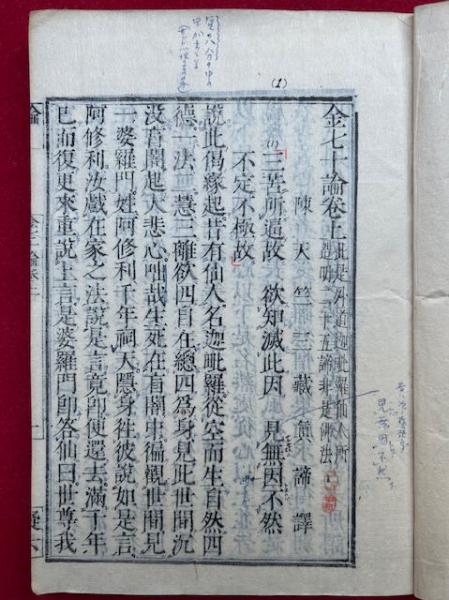 (1)
金七十論卷上
此是外道迦毗羅仙人所
造明二十五諦非是佛法
陳天竺三藏真諦譯
三苦所逼故 欲知滅此因 見無因不然
不定不極故
說此偈緣起昔有仙人名迦毗羅從空而生自然四
德一法二慧三離欲四自在總四為身見此世間沉
没盲闇起大悲心咄哉生死在盲闇中徧觀世間見
一婆羅門姓阿修利千年祠天隱身往彼說如是言
阿修利汝戲在家之法說是言竟即便還去滿千年
已而復更來重說上言是婆羅門即答仙曰世尊我